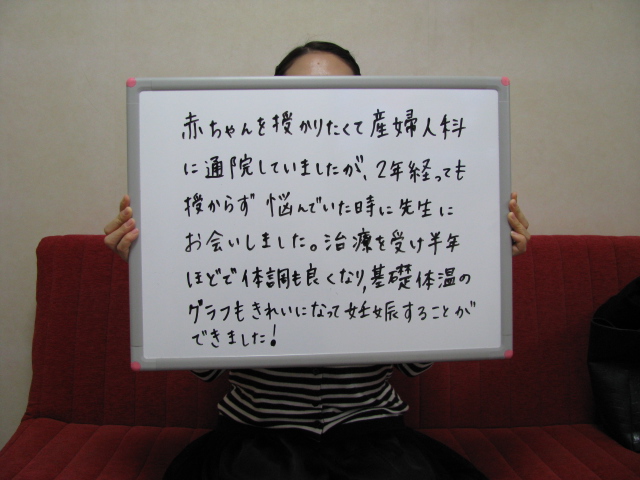 赤ちゃんを授かりたくて産婦人科
に通院していましたが、2年経っても
授からず悩んでいた時に先生に
お会いしました。治療を受け半年
ほどで体調も良くなり,基礎体温の
グラフもきれいになって妊娠することが
できました!